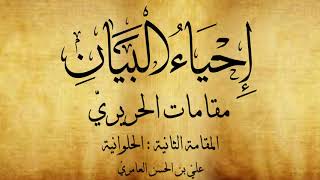 إِحْيَاءُ الْبَيَانِ
مقامات الحريريّ
المقامة الثانية : الحلوانية
علي بن الحسن العامري